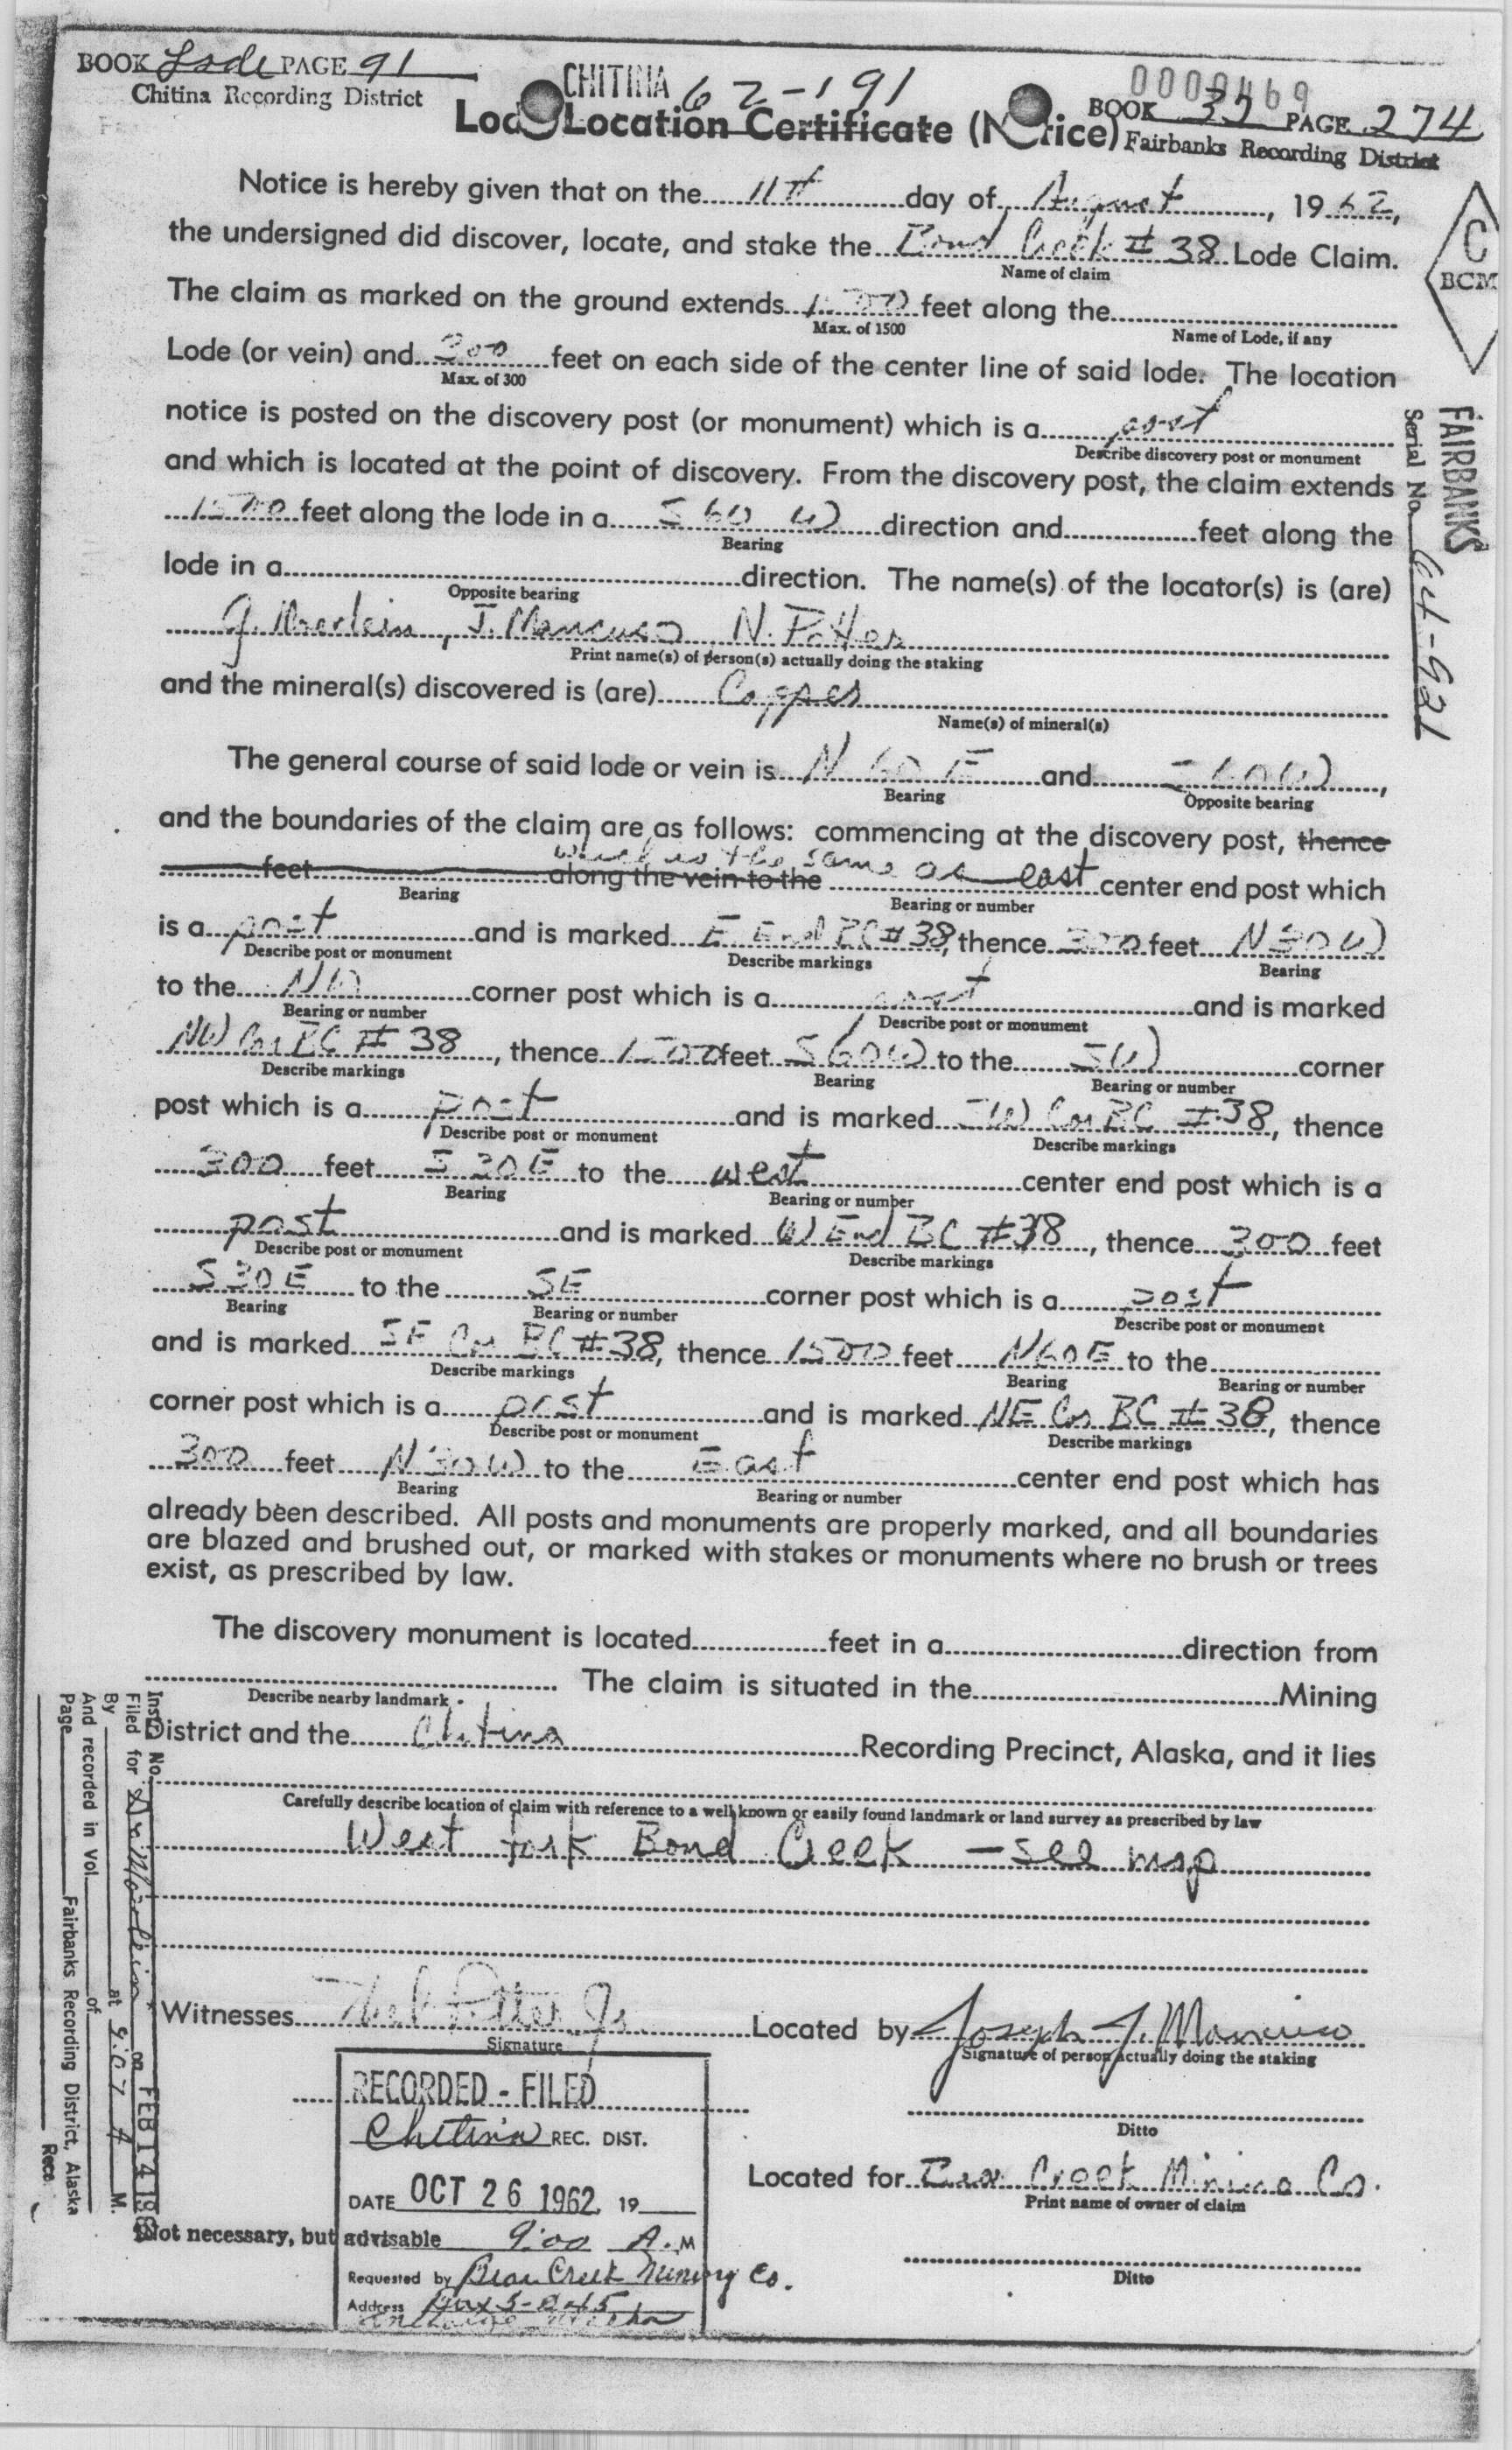 BOOK Lode PAGE 91
Chitina Recording District
CHITINA 62-191
0000469
BOOK 37 PAGE 274
Fairbanks Recording District
Lode Location Certificate (Notice)
Notice is hereby given that on the 11th day of August, 1962,
the undersigned did discover, locate, and stake the Bond Creek # 38 Lode Claim.
Name of claim
The claim as marked on the ground extends 1500 feet along the
Max. of 1500 Name of Lode, if any
Lode (or vein) and 300 feet on each side of the center line of said lode. The location
Max. of 300
notice is posted on the discovery post (or monument) which is a post
Describe discovery post or monument
and which is located at the point of discovery. From the discovery post, the claim extends
1500 feet along the lode in a S 60 W direction and feet along the
Bearing
lode in a direction. The name(s) of the locator(s) is (are)
Opposite bearing
J. Mancuso N. Potter
Print name(s) of person(s) actually doing the staking
and the mineral(s) discovered is (are) Copper
Name(s) of mineral(s)
The general course of said lode or vein is N 60 E and S 60 W,
Bearing Opposite bearing
and the boundaries of the claim are as follows: commencing at the discovery post, thence
which is the same as east
feet along the vein to the center end post which
Bearing Bearing or number
is a post and is marked E End BC # 38, thence 300 feet N 30 W
Describe post or monument Describe markings Bearing
to the NW corner post which is a post and is marked
Bearing or number Describe post or monument
NW Cor BC # 38, thence 1500 feet S 60 W to the SW corner
Describe markings Bearing Bearing or number
post which is a post and is marked SW Cor BC # 38, thence
Describe post or monument Describe markings
300 feet S 30 E to the west center end post which is a
Bearing Bearing or number
post and is marked W End BC # 38, thence 300 feet
Describe post or monument Describe markings
S 30 E to the SE corner post which is a post
Bearing Bearing or number Describe post or monument
and is marked SE Cor BC # 38, thence 1500 feet N 60 E to the
Describe markings Bearing Bearing or number
corner post which is a post and is marked NE Cor BC # 38, thence
Describe post or monument Describe markings
300 feet N 30 W to the East center end post which has
Bearing Bearing or number
already been described. All posts and monuments are properly marked, and all boundaries
are blazed and brushed out, or marked with stakes or monuments where no brush or trees
exist, as prescribed by law.
The discovery monument is located feet in a direction from
The claim is situated in the Mining
Describe nearby landmark
District and the Chitina Recording Precinct, Alaska, and it lies
Carefully describe location of claim with reference to a well known or easily found landmark or land survey as prescribed by law
West fork Bond Creek - see map
Witnesses Potter Jr. Located by Joseph J. Mancuso
Signature Signature of person actually doing the staking
Ditto
Located for Bear Creek Mining Co.
Print name of owner of claim
Ditto
RECORDED - FILED
Chitina REC. DIST.
DATE OCT 26 1962 19
Not necessary, but advisable
9:00 A.M
Requested by Bear Creek Mining Co.
Address
C
BCM
FAIRBANKS
Serial No. 64-921
Inst. No.
Filed for
FEB 14
By at 9:07 A M.
And recorded in Vol. of
Page Fairbanks Recording District, Alaska
Reco.